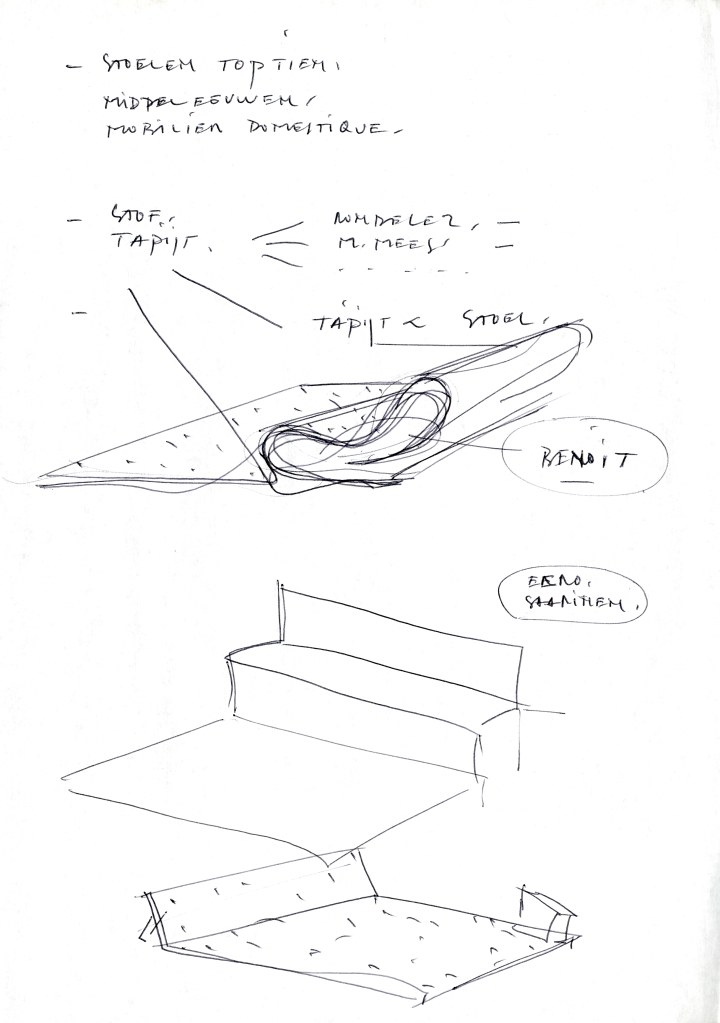 - STOELEN TOPTIEN,
MIDDELEEUWEN,
MOBILIER DOMESTIQUE.
- STOF,
TAPIJT.
RONDELEZ, -
M. MEES, -
-
TAPIJT < STOEL,
BENOIT
EERO.
SAARINEN.